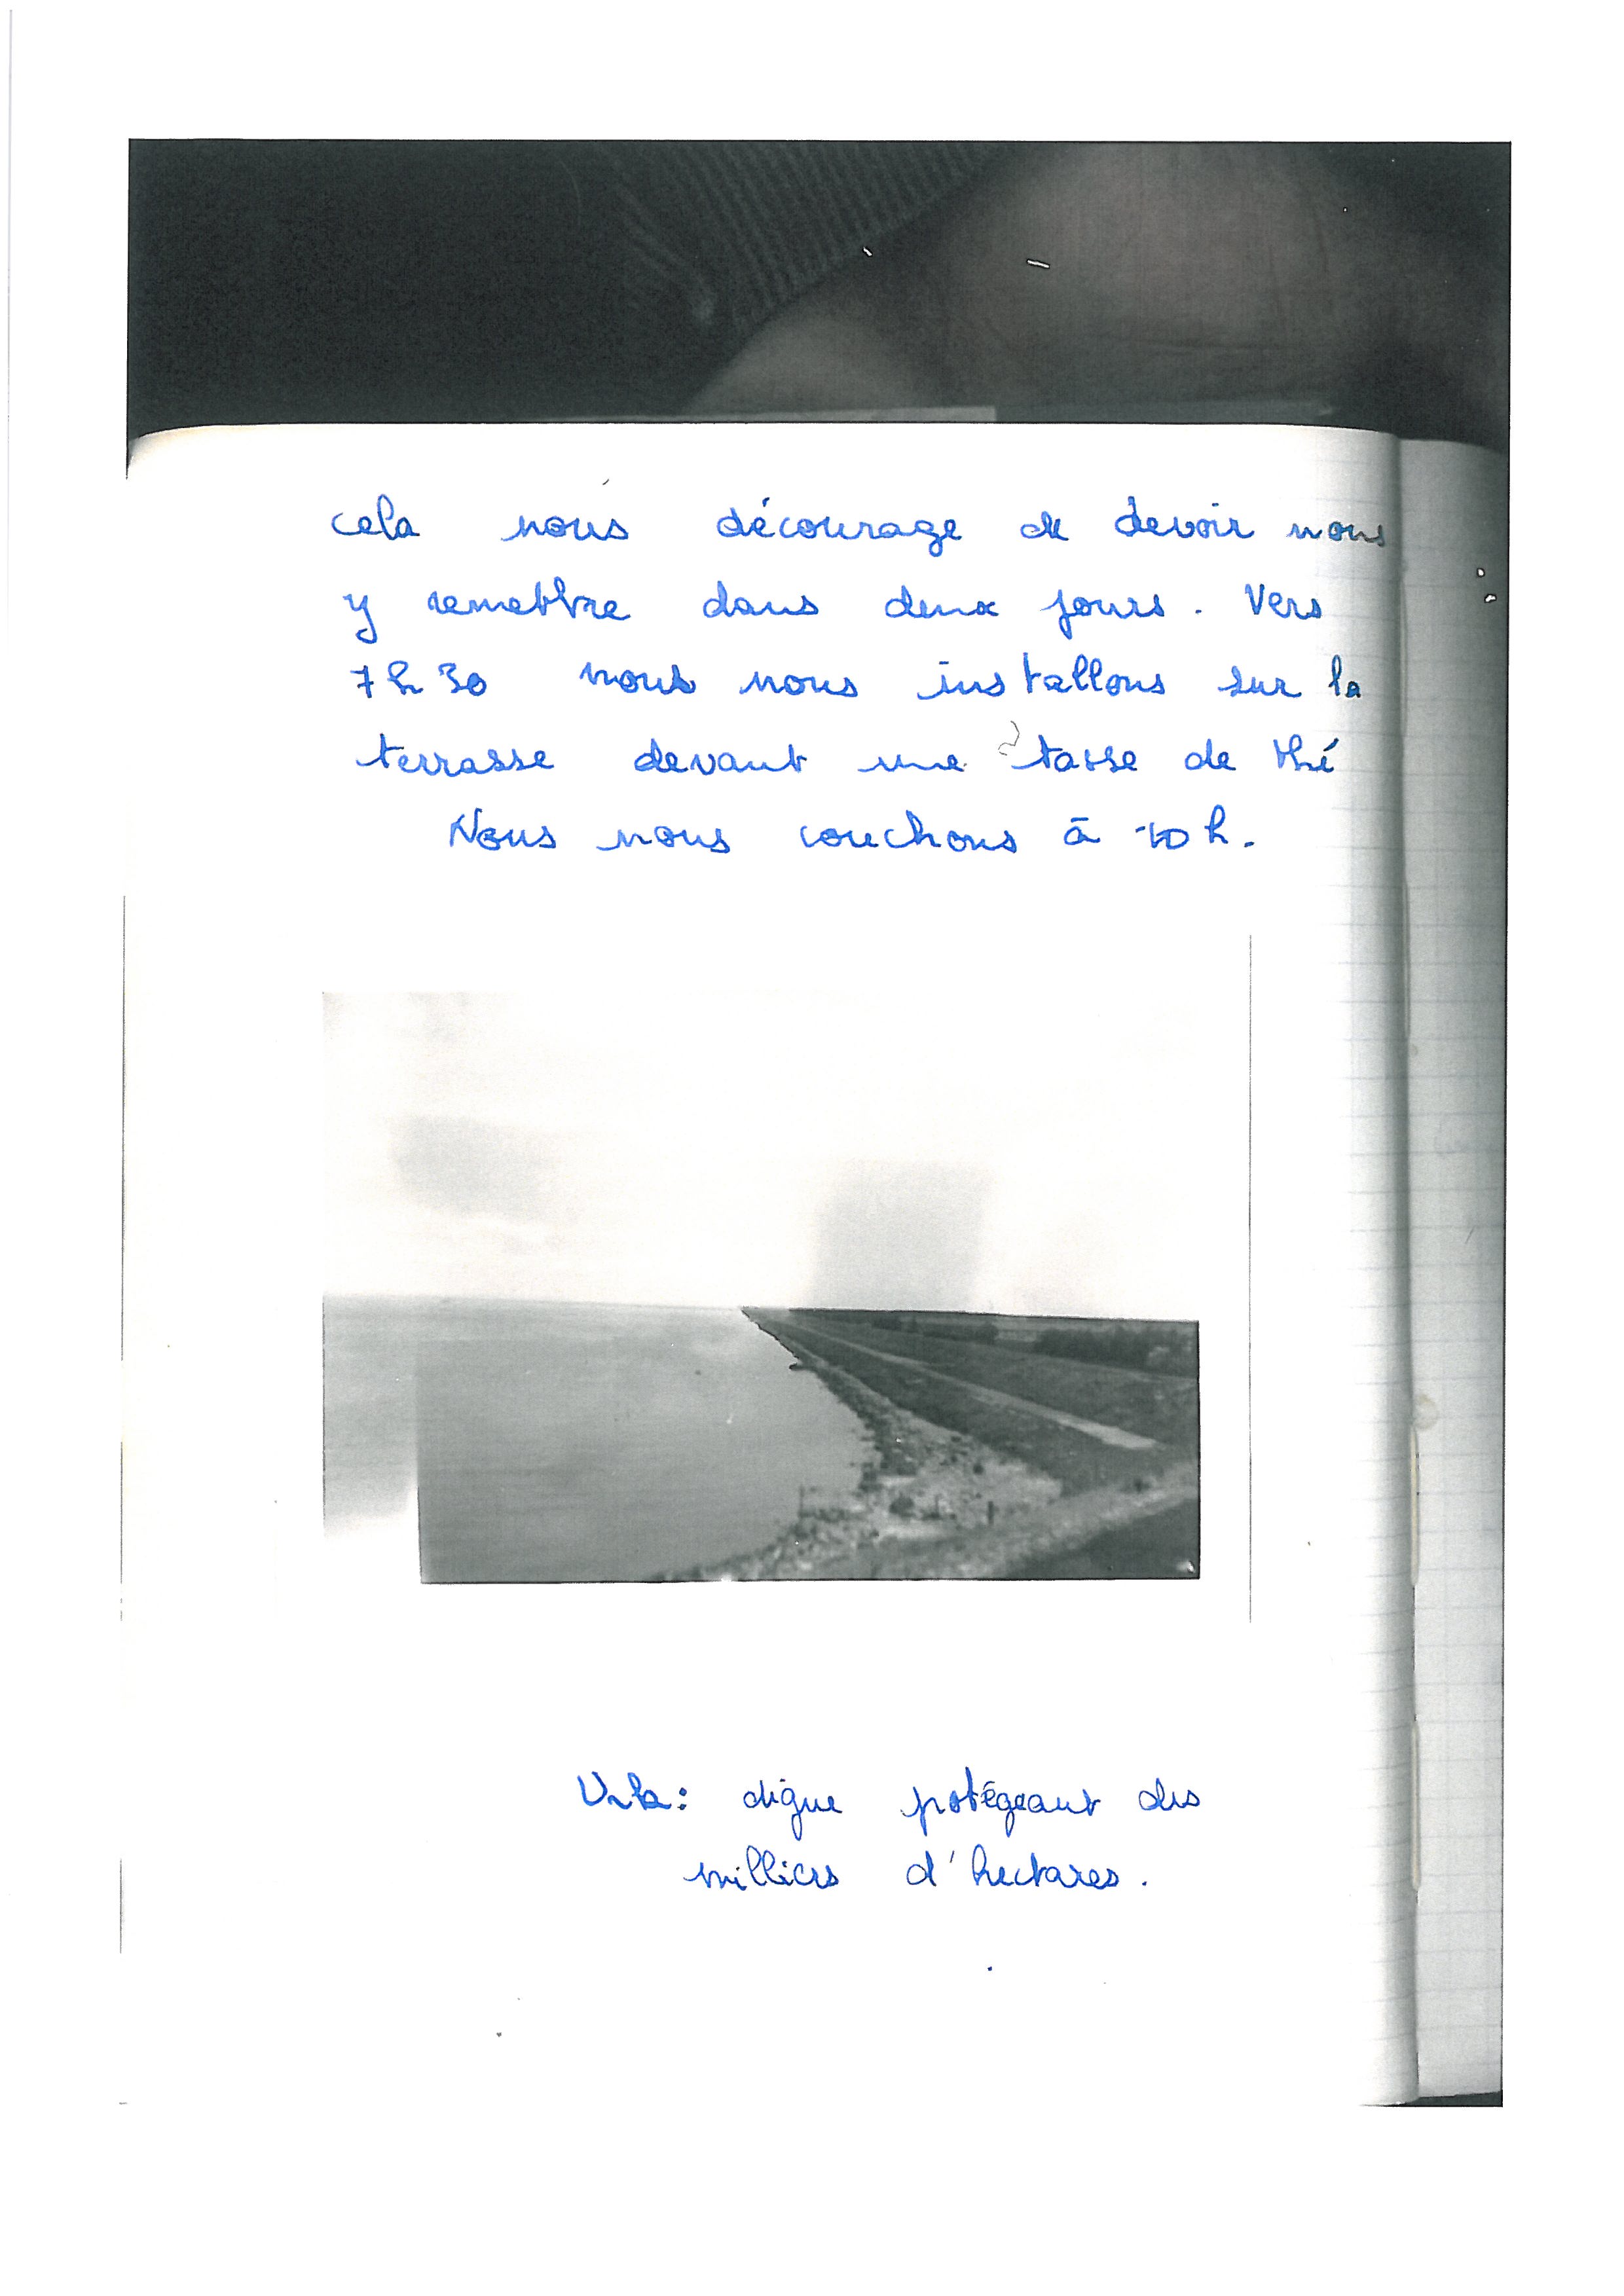 cela nous décourage de devoir nous
y remettre dans deux jours. Vers
7h30 nous nous installons sur la
terrasse devant une tasse de thé
Nous nous couchons à 10 h.
digue protégeant des
milliers d'hectares.